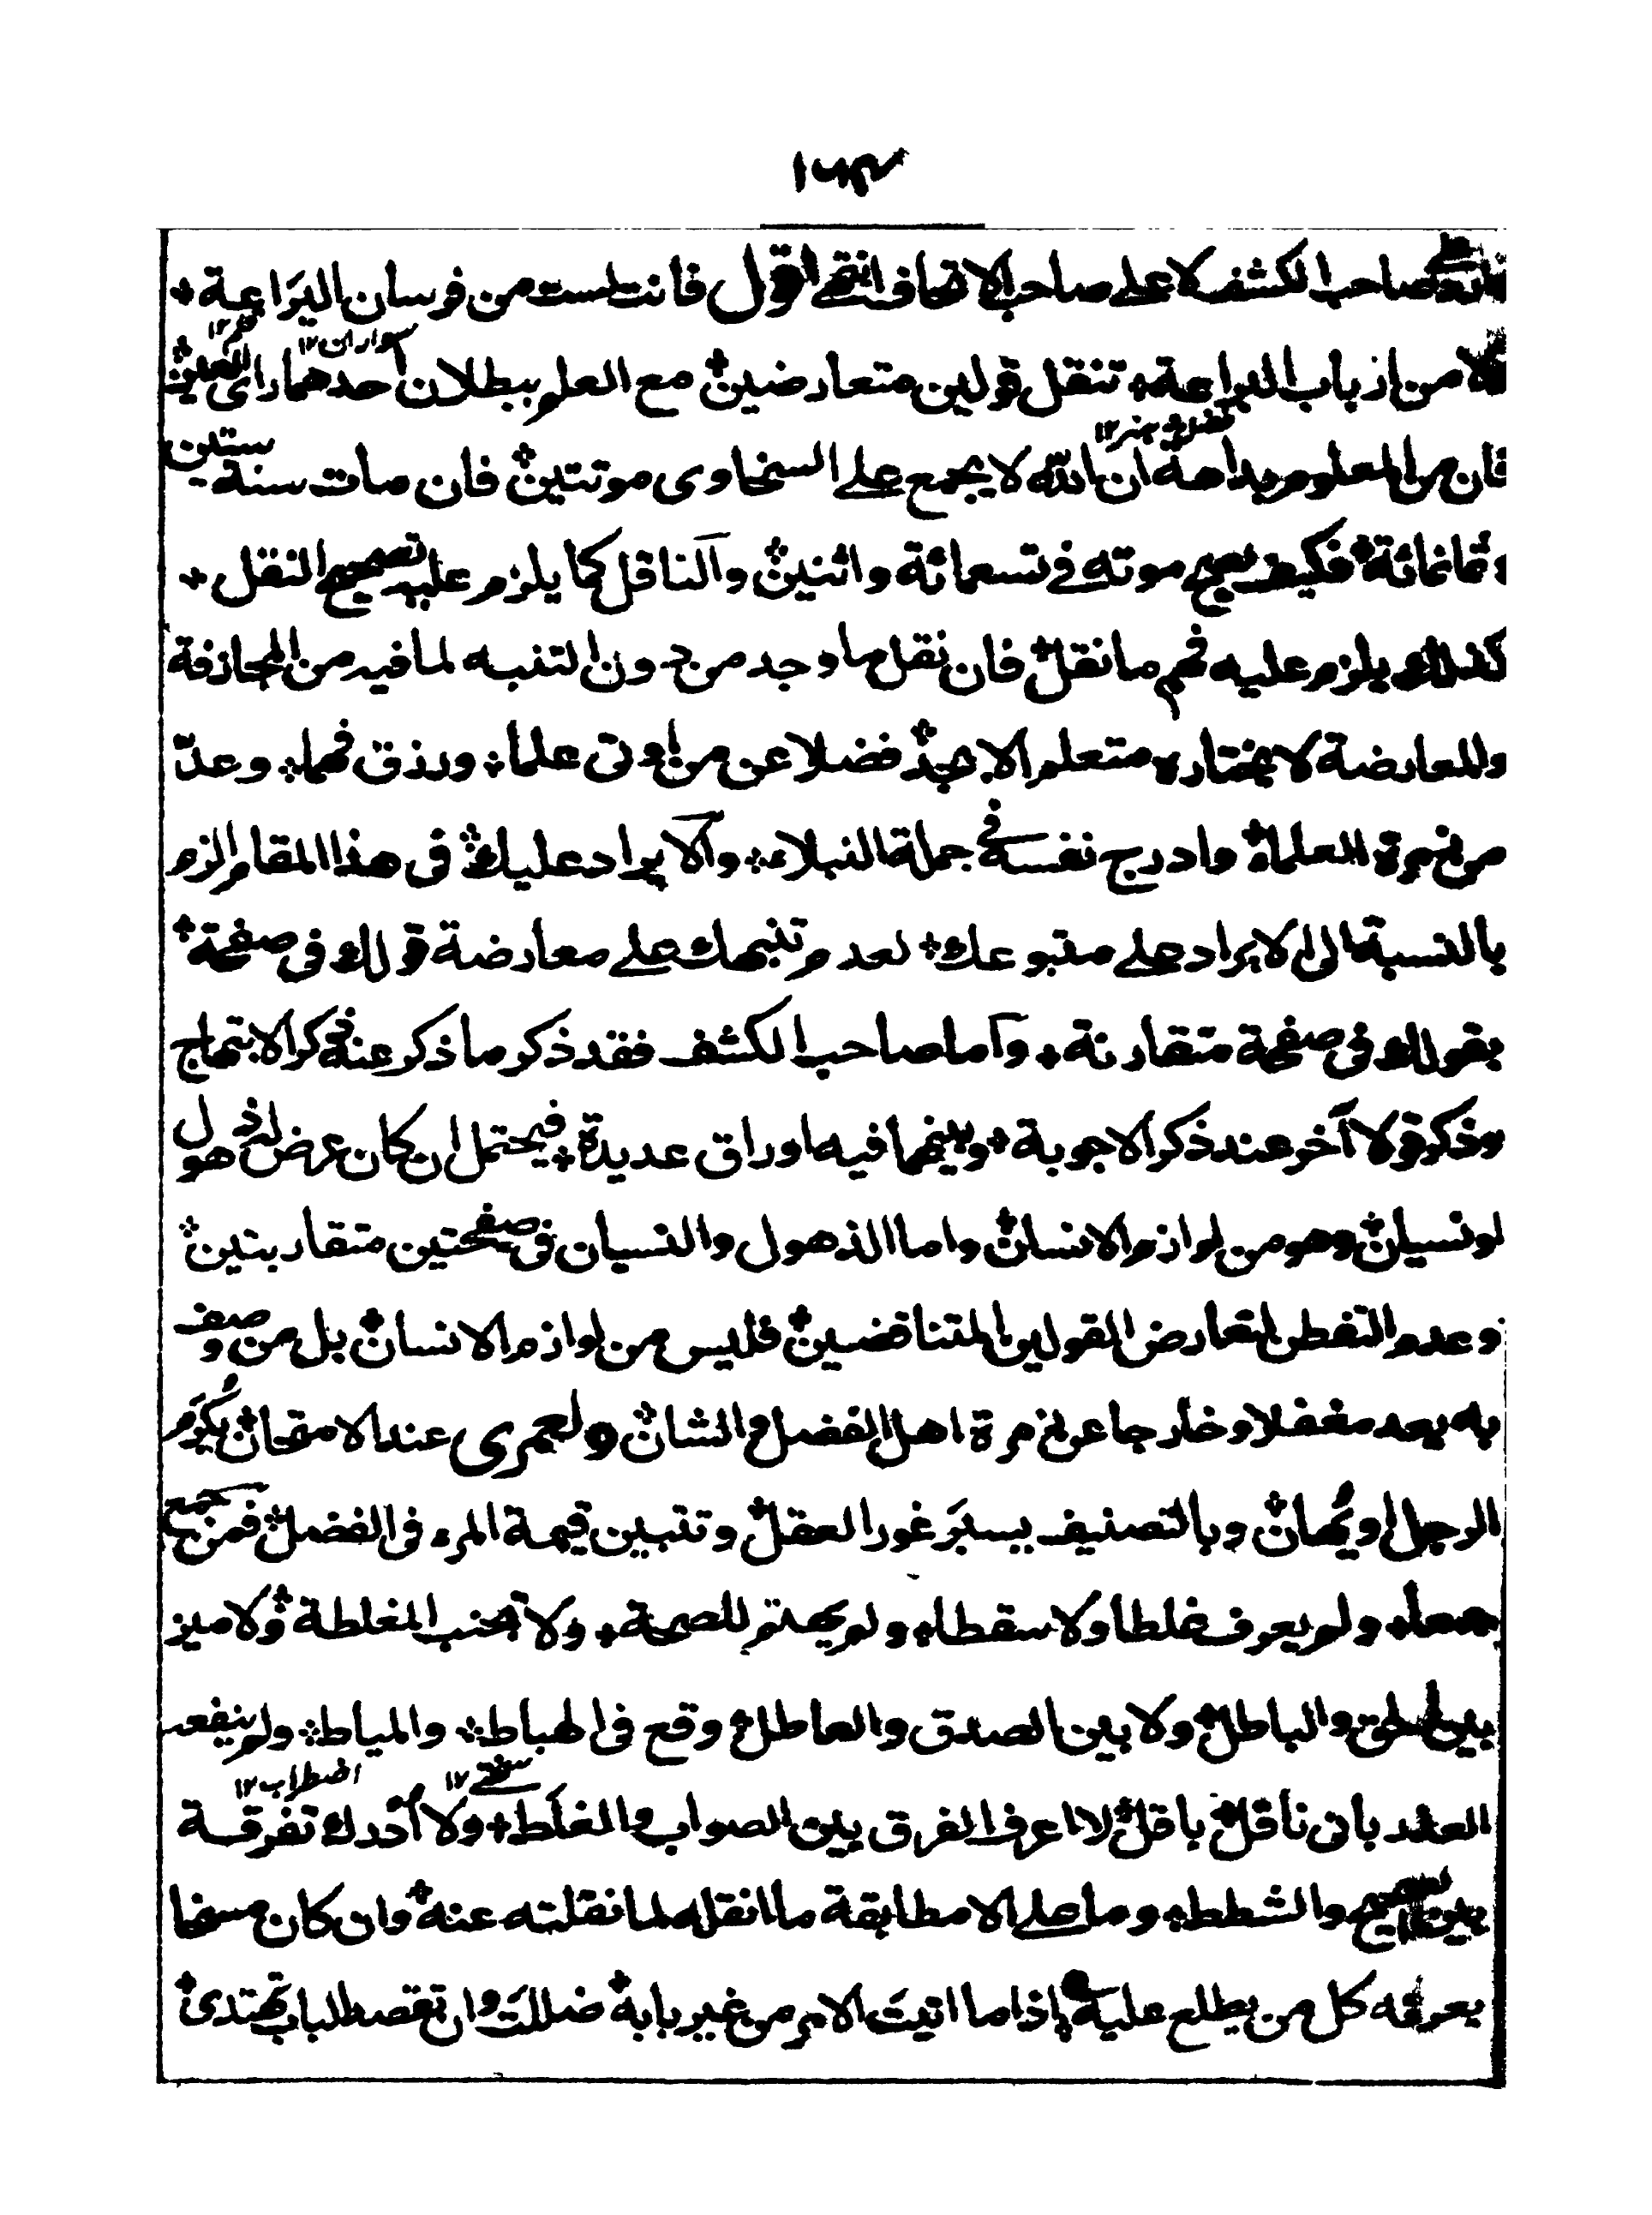 ١٦٣
صاحب الكشف لا على صاحب الاتحاف انتهى اقول فانت لست من فرسان اليراعة ٭
ولا من ارباب البراعة ٭ تنقل قولين متعارضين ٭ مع العلم ببطلان احدهما راى العين ٭
سواران ١٢
فان من المعلوم بداهة ان الله لا يجمع على السخاوى موتتين ٭ فان مات سنة ستين
وثمانمائة ٭ فكيف يصح موته فى تسعمائة واثنين ٭ والناقل كما يلزم عليه تصحيح النقل ٭
كذلك يلزم عليه فهم ما نقل ٭ فان نقل ما وجد من دون التنبه لما فيه من المجازفة
والمعارضة لا يختاره متعلم الابجد ٭ فضلا عن من اوتى علما ٭ ورزق فهما ٭ وعدّ
من زمرة العلماء ٭ وادرج نفسه فى جملة النبلاء ٭ والايراد عليك ٭ فى هذا المقام الزم
بالنسبة الى الايراد على متبوعك ٭ لعدم تنبهك على معارضة قولك فى صفحة ٭
بقولك فى صفحة متقارنة ٭ واما صاحب الكشف فقد ذكر ما ذكر عنه فى ذكر الابتهاج
وذكر قولا آخر عند ذكر الاجوبة ٭ وبينهما فيه اوراق عديدة ٭ فيحتمل ان كان عرض له ذهول
او نسيان ٭ وهو من لوازم الانسان ٭ واما الذهول والنسيان فى صفحتين متقاربتين ٭
وعدم التفطن لتعارض القولين المتناقضين ٭ فليس من لوازم الانسان ٭ بل من وصف
به يعد مغفلا وخارجا عن زمرة اهل الفضل والشان ٭ ولعمرى عند الامتحان ٭ يُكرَم
الرجل او يُهان ٭ وبالتصنيف يسبَر غور العقل ٭ وتتبين قيمة المرء فى الفضل ٭ فمن جمع
جمعا ٭ ولم يعرف غلطا ولا سقطا ٭ ولم يهتم للصحة ٭ ولا تجنب المغلطة ٭ ولا ميز
بين الحق والباطل ٭ ولا بين الصدق والعاطل ٭ وقع فى الهياط ٭ والمياط ٭ ولم ينفعه
سختى ١٢ اضطراب ١٢
العذر بانى ناقل ٭ باقل ٭ لا اعرف الفرق بين الصواب والغلط ٭ ولا أدرك تفرقة
بين الصحيح والشطط ٭ وما على الا مطابقة ما انقله لما نقلته عنه ٭ وان كان مسخا
يعرفه كل من يطلع عليه ٭ إذا ما اتيتَ الامر من غير بابه ٭ ضللتَ وان تقصد الباب تهتدى ٭